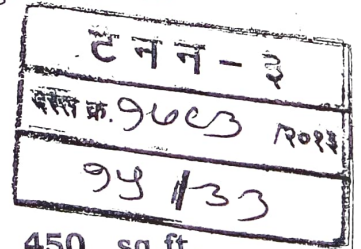 ट न न - ३
दस्त क्र. १७८३ /२०१३
१५ / ३३
450 sq.ft